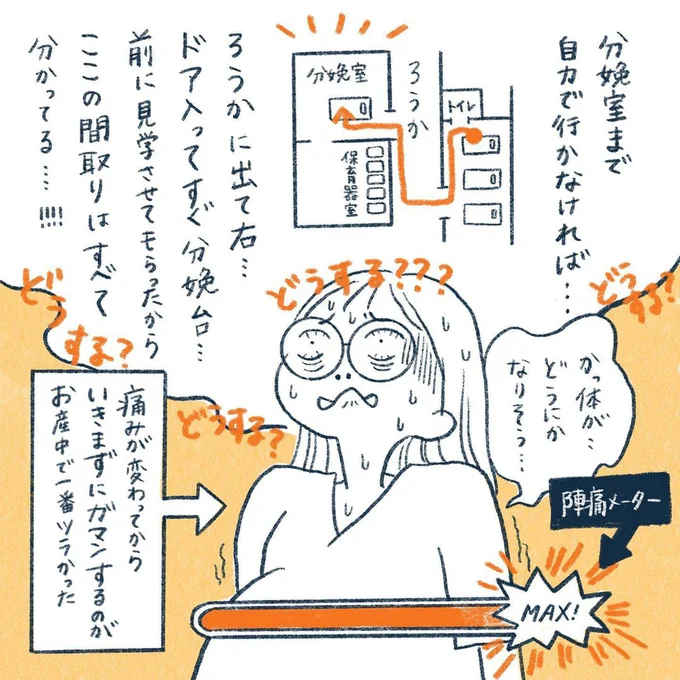 分娩室まで
自力で行かなければ…
分娩室
ろうか
トイレ
保育器室
ろうかに出て右…
ドア入ってすぐ分娩台…
前に見学させてもらったから
ここの間取りはすべて
分かってる…!!!!
どうする???
どうする?
どうする?
どうする?
かっ体が…
どうにか
なりそうっ…
陣痛メーター
MAX!
痛みが変わってから
いきまずにガマンするのが
お産中で一番ツラかった